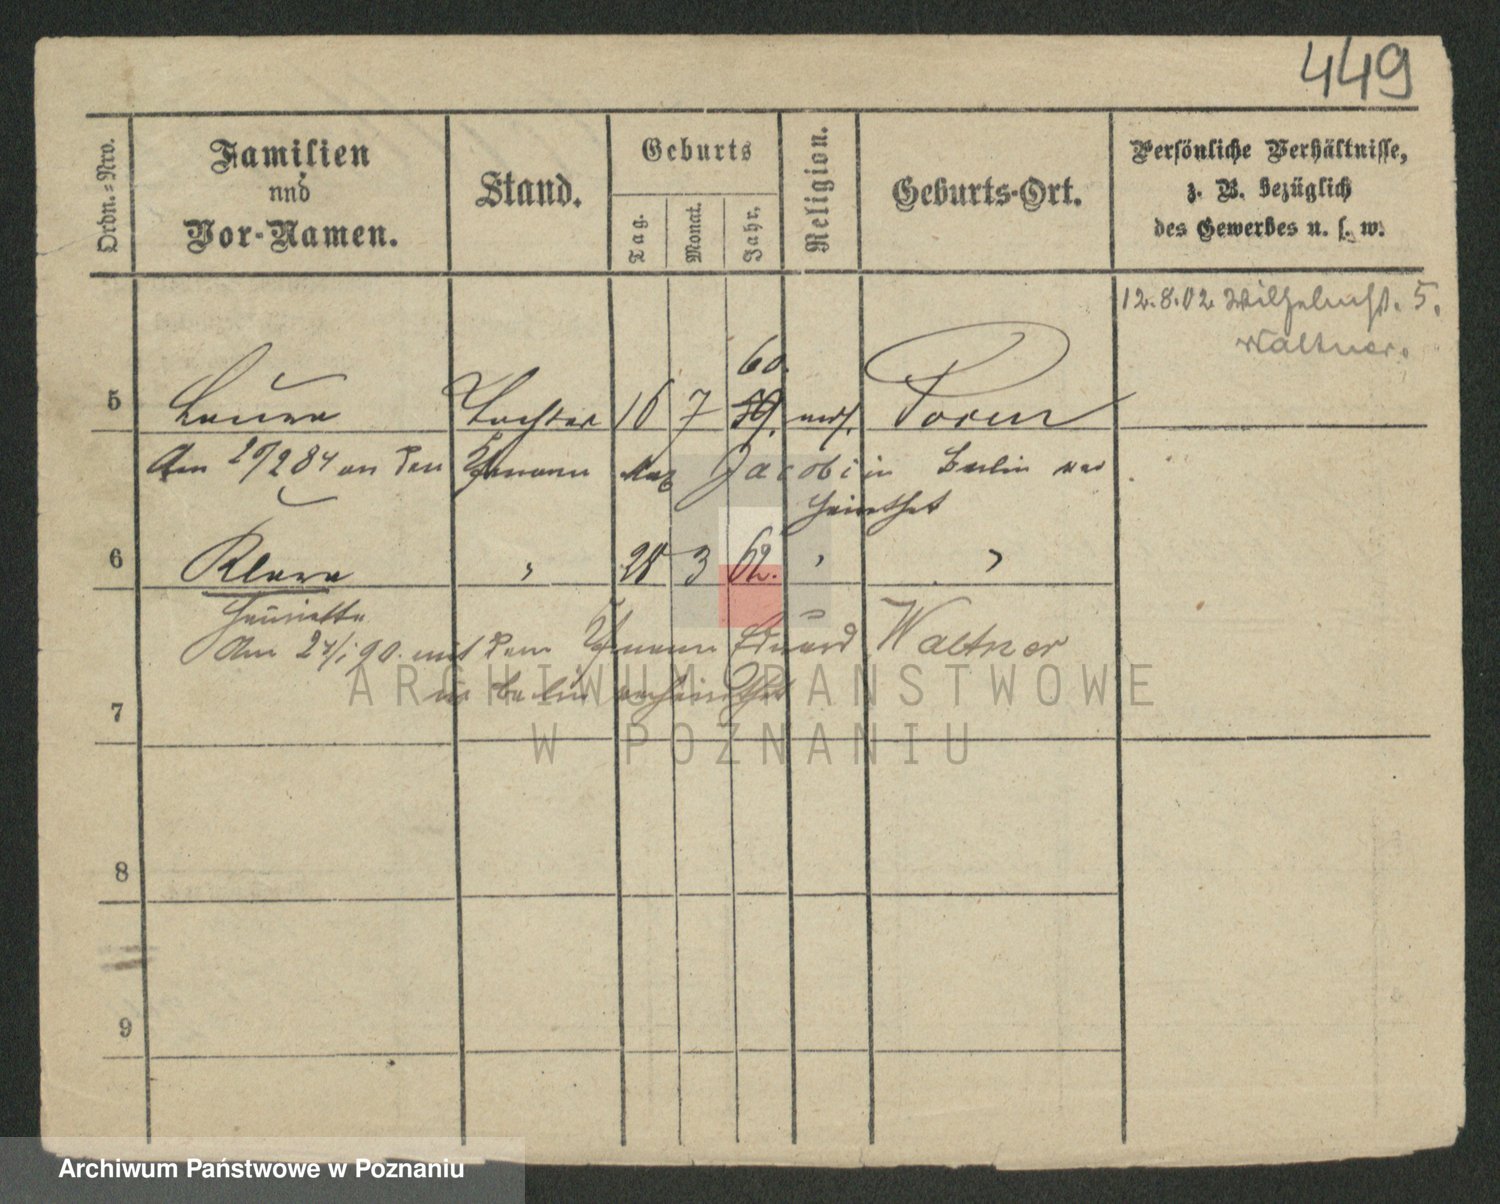 449
Ordn.=Nro.
Familien
und
Vor-Namen.
Stand.
Geburts
Tag.
Monat.
Jahr,
Religion.
Geburts-Ort.
Persönliche Verhältnisse,
z. B. bezüglich
des Gewerbes u. s. w.
12.8.02 Wilhelmst. 5.
Waltner.
60.
5 Laura Tochter 16 7 59. mos. Posen
Am 29/2 84 an den Ehemann Max Jacobi in Berlin ver
heirathet
6 Klara " 28 3 62. " "
Henriette
Am 24/1 90. mit dem Ehemann Eduard Waltner
in Berlin verheirathet
7
8
9
ARCHIWUM PAŃSTWOWE
W POZNANIU
Archiwum Państwowe w Poznaniu